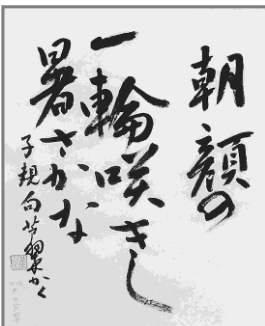 朝顔の
一輪咲きし
暑さかな
子規句 かく